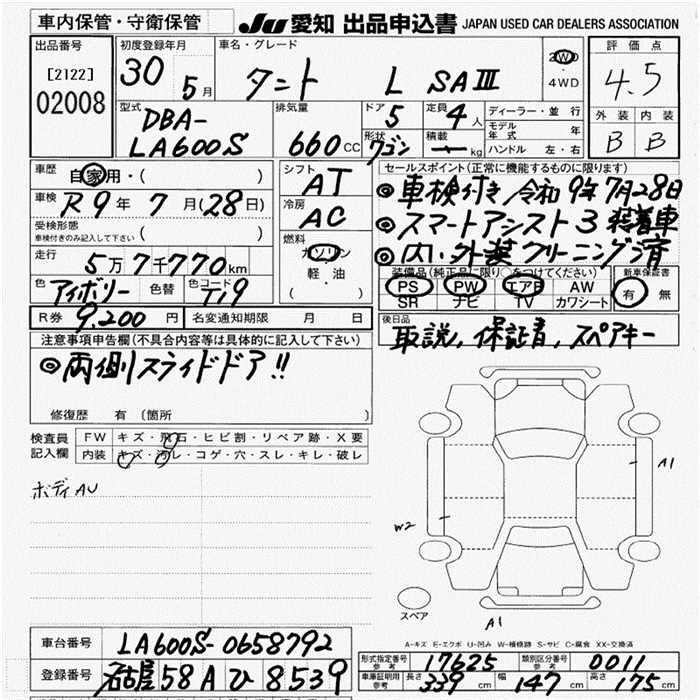 車内保管・守衛保管
JU 愛知 出品申込書 JAPAN USED CAR DEALERS ASSOCIATION
出品番号
[2122]
02008
初度登録年月
30 5月
車名・グレード
タント L SAⅢ
2WD
・
4WD
評価点
4.5
外装 内装
B B
型式
DBA-
LA600S
排気量
660 CC
ドア
5
形状
ワゴン
定員
4人
積載
ー kg
ディーラー・並行
モデル年式 年
ハンドル 左・右
車歴
自家用・( )
車検
R9年 7月(28日)
受検形態
車検付きのみ記入して下さい ( )
走行
5万7千770km
色 アイボリー 色替 色コード T19
R券 9,200円 名変通知期限 月 日
シフト
AT
冷房
AC
燃料
ガソリン
軽・油
( )
セールスポイント(正常に機能するものに限ります)
◎車検付き 令和9年7月28日
◎スマートアシスト3装着車
◎内・外装クリーニング済
装備品(純正品に限り○をつけてください)
PS PW エアB AW
SR ナビ TV カワシート
新車保証書
有 無
後日品
取説, 保証書, スペアキー
注意事項申告欄(不具合内容等は具体的に記入して下さい)
◎両側スライドドア!!
修復歴 有(箇所
検査員
記入欄
FW キズ・飛石・ヒビ割・リペア跡・X要
内装 キズ・汚レ・コゲ・穴・スレ・キレ・破レ
ボディAU
A1
W2
スペア
A1
A-キズ E-エクボ U-凹み W-補修跡 S-サビ C-腐食 XX-交換済
車台番号 LA600S-0658792
登録番号 名古屋58Aひ8539
形式指定番号 参考 17625 類別区分番号 参考 0011
車庫証明用 参考 長さ 339 cm 幅 147 cm 高さ 175 cm